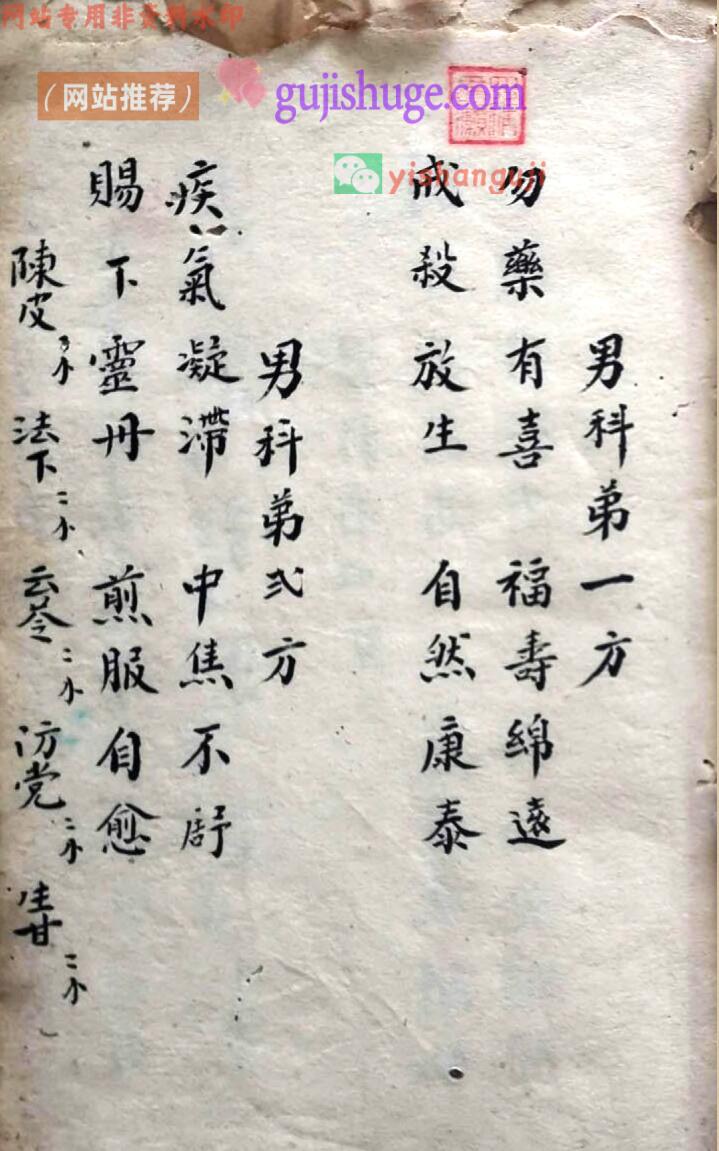 网站专用非资料水印
（网站推荐）
gujishuge.com
yishanguji
男科弟一方
勿藥有喜 福壽綿遠
戒殺放生 自然康泰
男科弟弍方
痰氣凝滯 中焦不舒
賜下靈丹 煎服自愈
陳皮 法下 云苓 防党 生甘